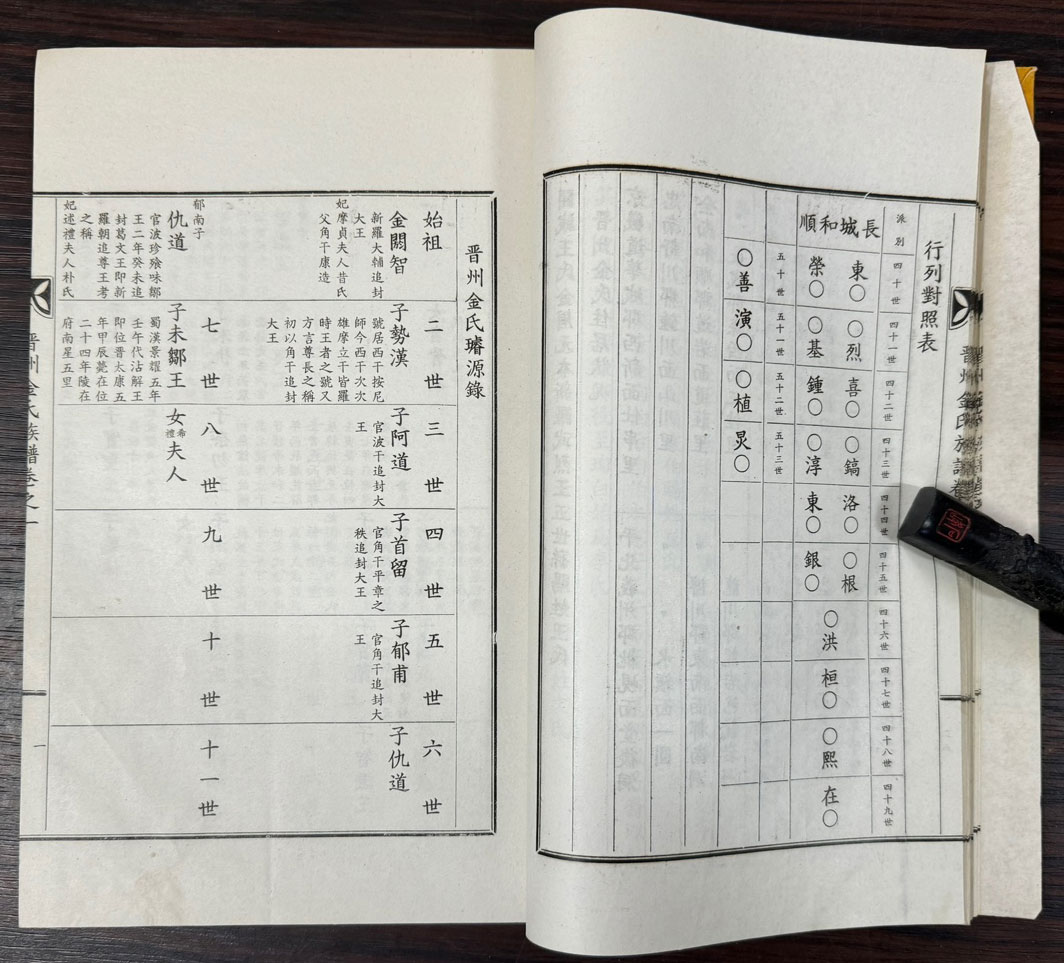 行列對照表
派別
四十世
四十一世
四十二世
四十三世
四十四世
四十五世
四十六世
四十七世
四十八世
四十九世
長城和順
東〇
〇烈
喜〇
〇鎬
洛〇
〇根
榮〇
〇基
鍾〇
〇淳
東〇
銀〇
〇洪
桓〇
〇熙
在〇
五十世
五十一世
五十二世
五十三世
〇善
演〇
〇植
炅〇
晋州金氏族譜卷
晋州金氏璿源錄
始祖
二世
三世
四世
五世
六世
金閼智
新羅大輔追封
大王
妃摩貞夫人昔氏
父角干康造
子勢漢
號居西干按尼
師今西干次次
雄摩立干皆羅
時王者之號又
方言尊長之稱
初以角干追封
大王
子阿道
官波干追封大
王
子首留
官角干平章之
秩追封大王
子郁甫
官角干追封大
王
子仇道
七世
八世
九世
十世
十一世
郁甫子
仇道
官波珍飡味鄒
王二年癸未追
封葛文王即新
羅朝追尊王考
之稱
妃述禮夫人朴氏
子未鄒王
蜀漢景耀五年
壬午代沾解王
即位晋太康五
年甲辰薨在位
二十四年陵在
府南星五里
女希禮夫人
晋州金氏族譜卷之一
一